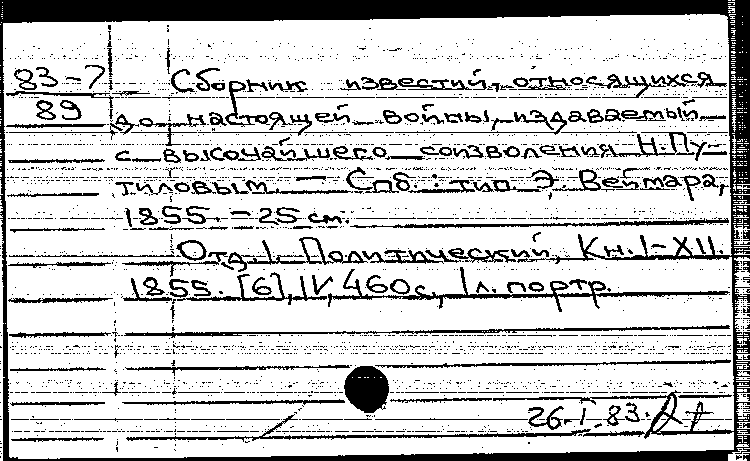 83-7 Сборник известий, относящихся
89 до настоящей войны, издаваемый
с высочайшего соизволения Н. Пу-
тиловым. — Спб.: тип. Э. Веймара,
1855. - 25 см.
Отд. I. Политический, Кн. I-XII.
1855. [6], IV, 460 с., 1 л. портр.
26.I.83.